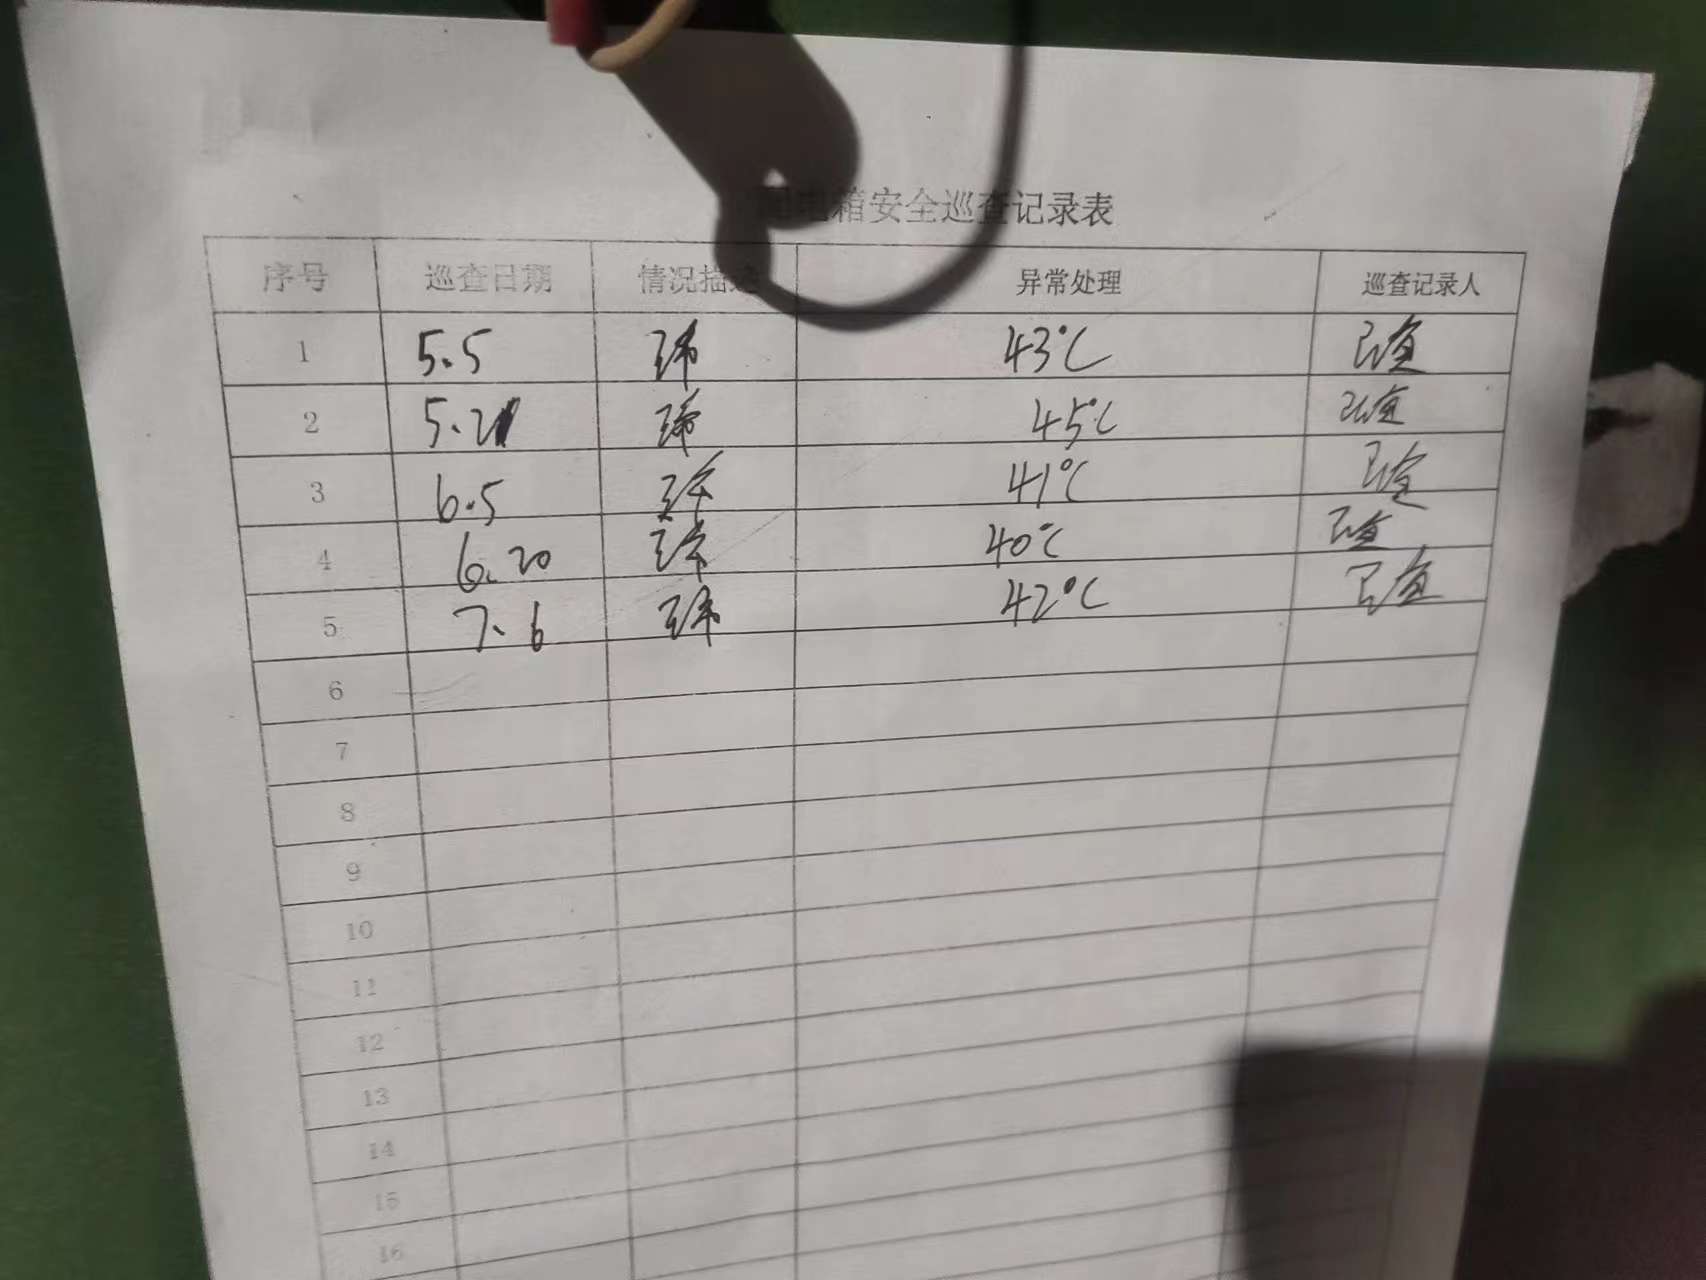 电箱安全巡查记录表
序号 巡查日期 情况描述 异常处理 巡查记录人
1 5.5 正常 43℃ 已查
2 5.21 正常 45℃ 已查
3 6.5 正常 41℃ 已查
4 6.20 正常 40℃ 已查
5 7.6 正常 42℃ 已查
6
7
8
9
10
11
12
13
14
15
16